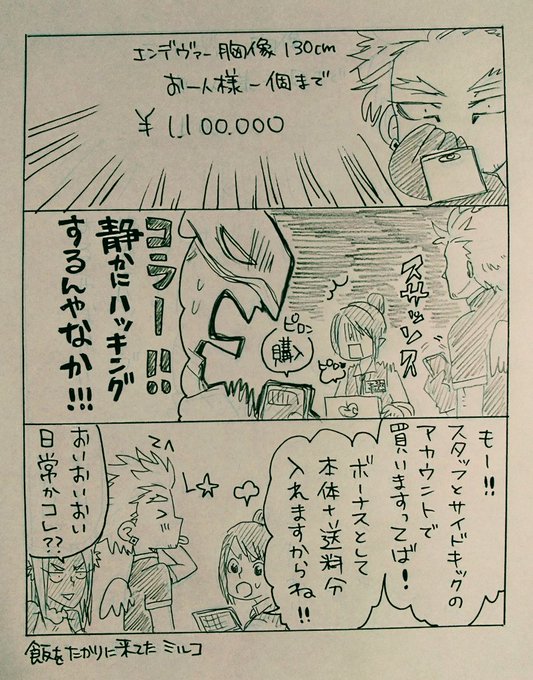 エンデヴァー胸像 130cm
お一人様一個まで
¥ 1,100.000
スサッッス
コラー!!
静かにハッキング
するんやなか!!!
ピロン
購入
ピロン
もー!!
スタッフとサイドキックの
アカウントで
買いますってば!
ボーナスとして
本体+送料分
入れますからね!!
おいおいおい
日常かコレ??
飯をたかりに来てた ミルコ